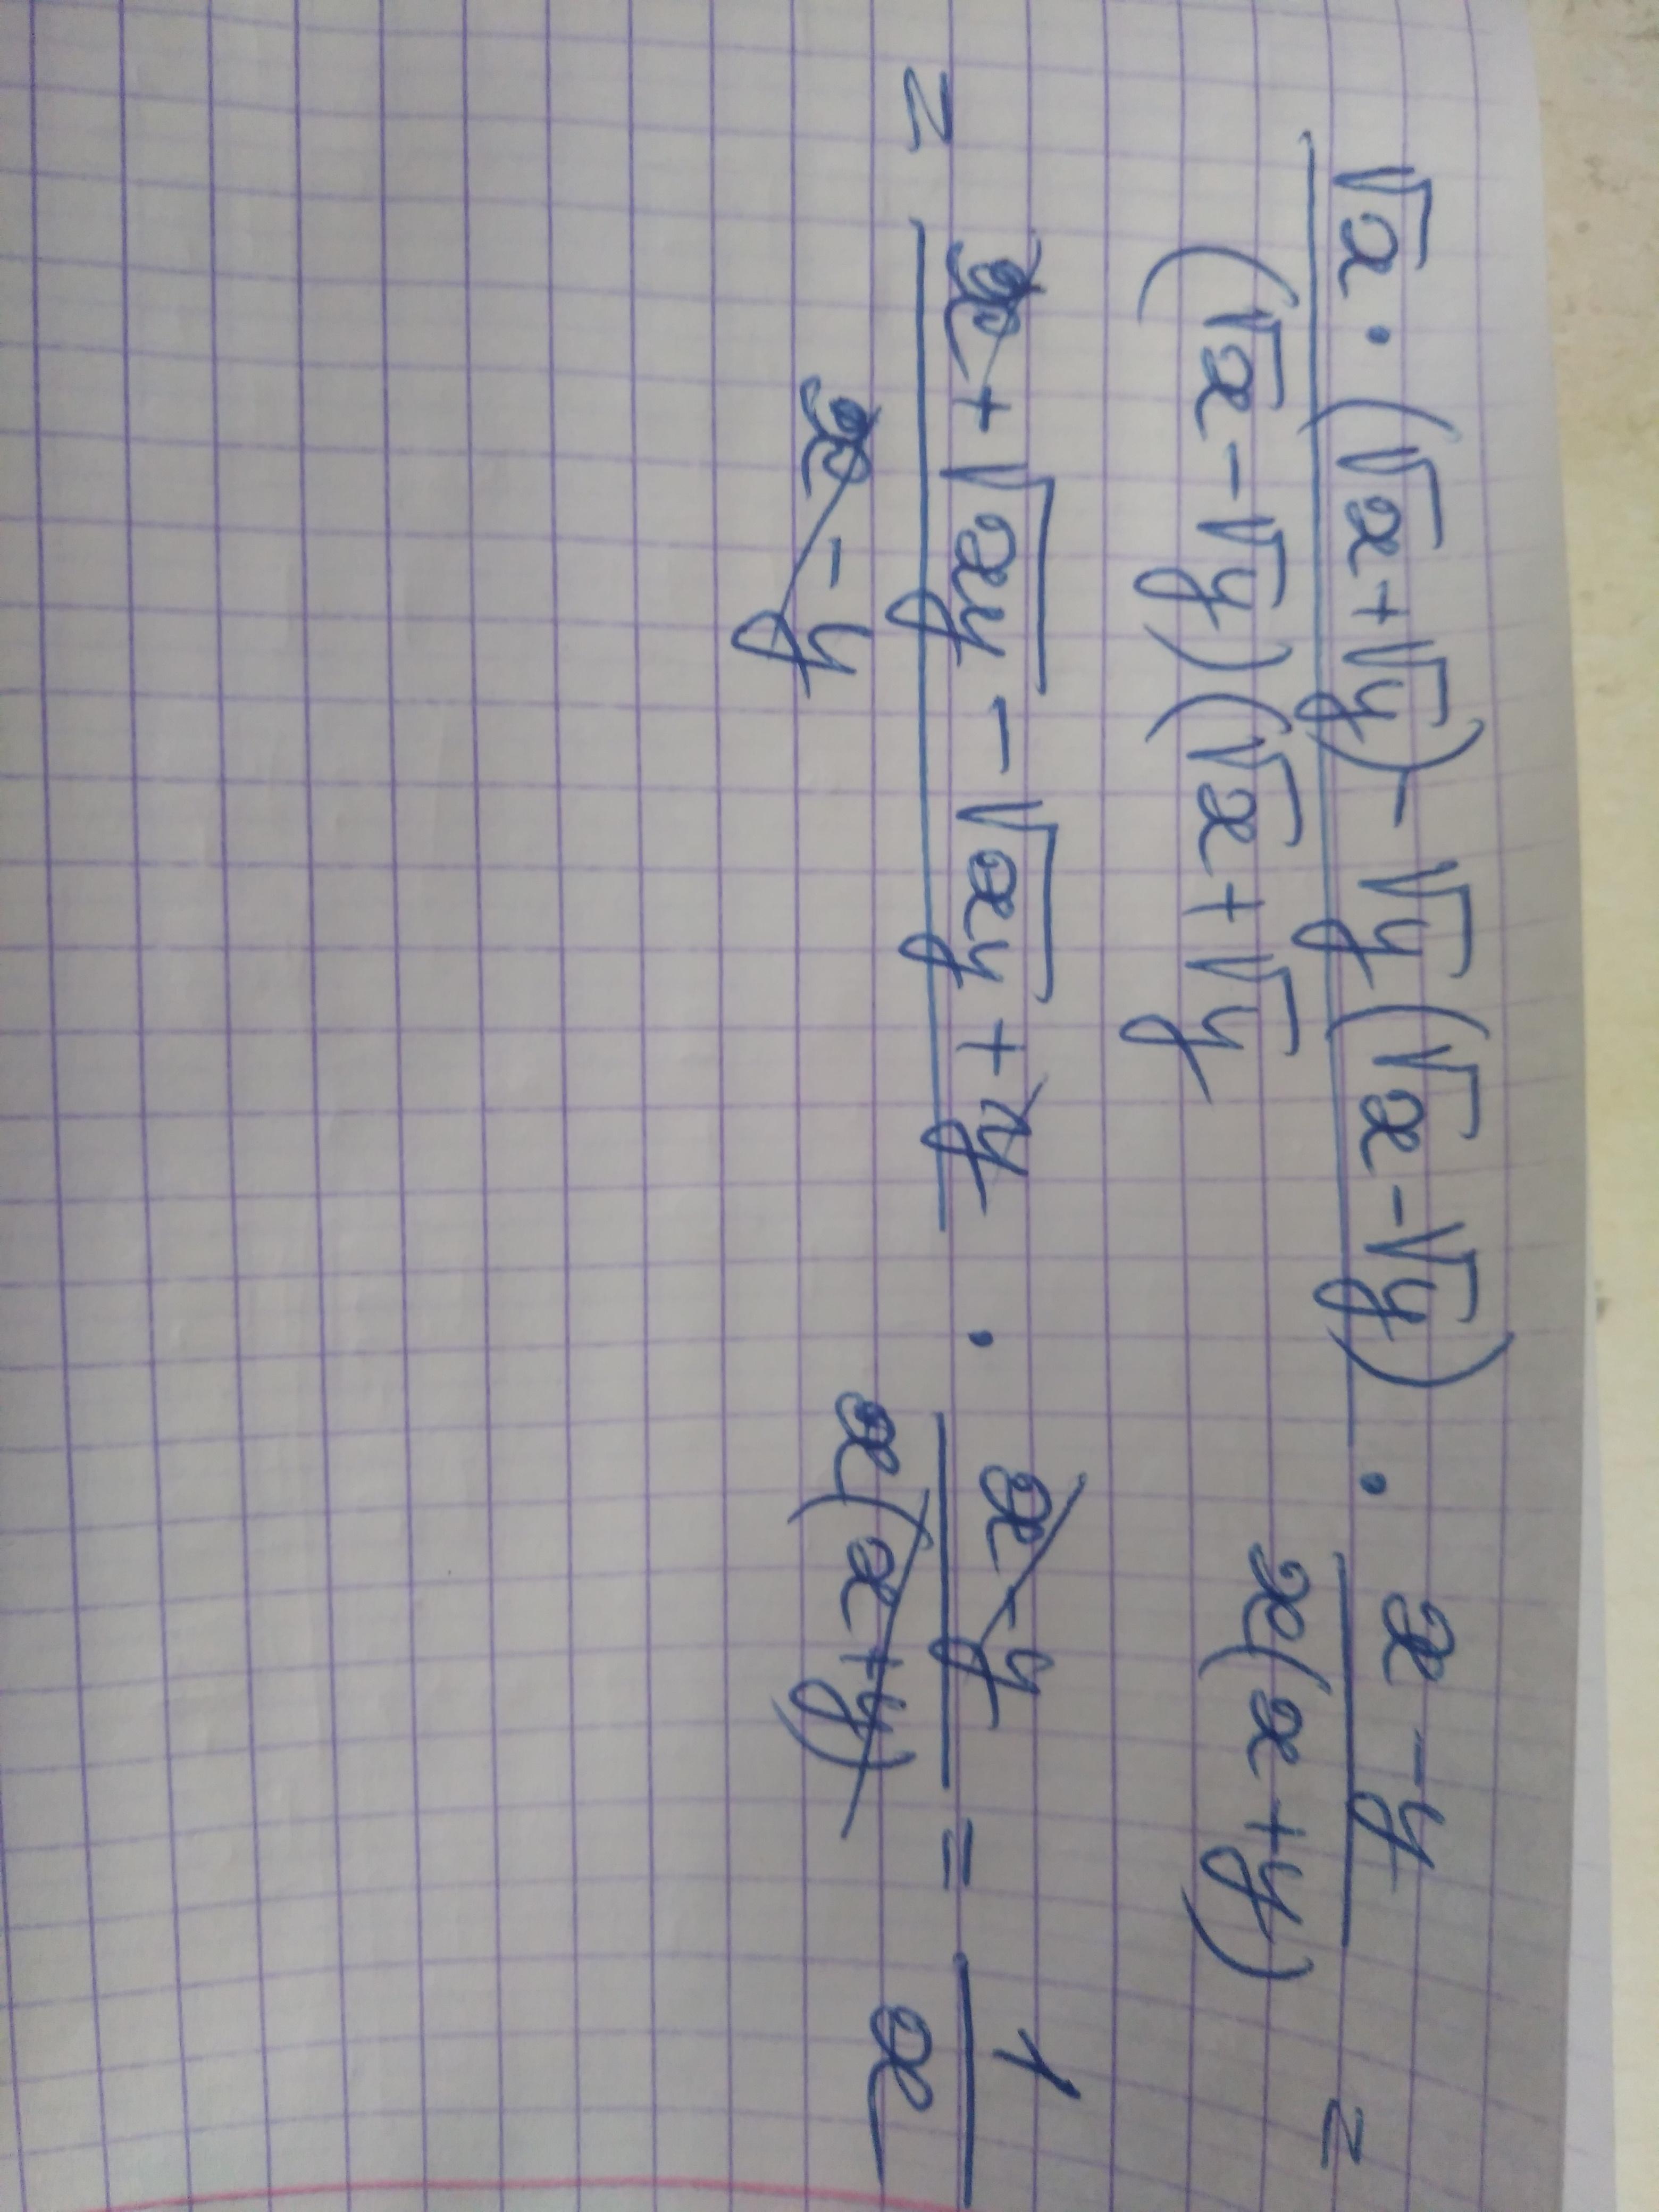 √x · (√x + √y) - √y (√x - √y) / (√x - √y)(√x + √y · x - y / x(x + y) =
= x + √xy - √xy + y / x - y · x - y / x(x + y) = 1 / x